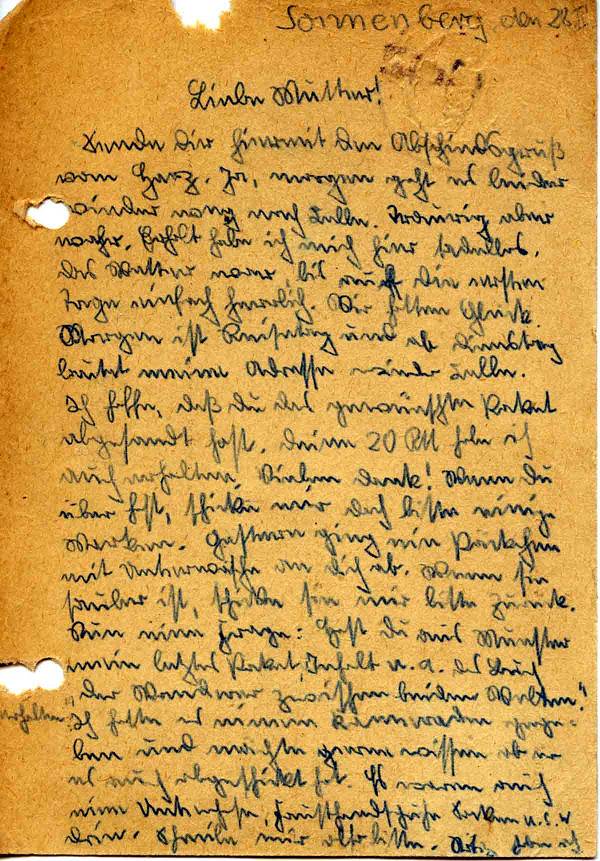 Sonnenberg, den 28.II
Liebe Mutter!
Sende Dir hiermit den Abschiedsgruß
vom Harz. Ja, morgen geht es leider
wieder weg nach Celle. Traurig aber
wahr. Erholt habe ich mich hier tadellos.
Das Wetter war bis auf die ersten
Tage einfach herrlich. Wir hatten Glück.
Morgen ist Reisetag und ab Dienstag
lautet meine Adresse wieder Celle.
Ich hoffe, daß du das gewünschte Paket
abgesandt hast. Deine 20 RM habe ich
auch erhalten. Vielen Dank! Wenn Du
über hast, schicke mir doch bitte einige
Marken. Gestern ging ein Päckchen
mit Unterwäsche an Dich ab. Wenn sie
sauber ist, schicke sie mir bitte zurück.
Nun eine Frage: Hast Du aus Munster
mein letztes Paket, Inhalt u. a. das Buch
"Der Wanderer zwischen beiden Welten"
erhalten. Ich hatte es einem Kameraden gege-
ben und möchte gerne wissen ob er
es auch abgeschickt hat. Es waren auch
eine Unterhose, Fausthandschuhe Socken u.s.w
drin. Schreibe mir also bitte.